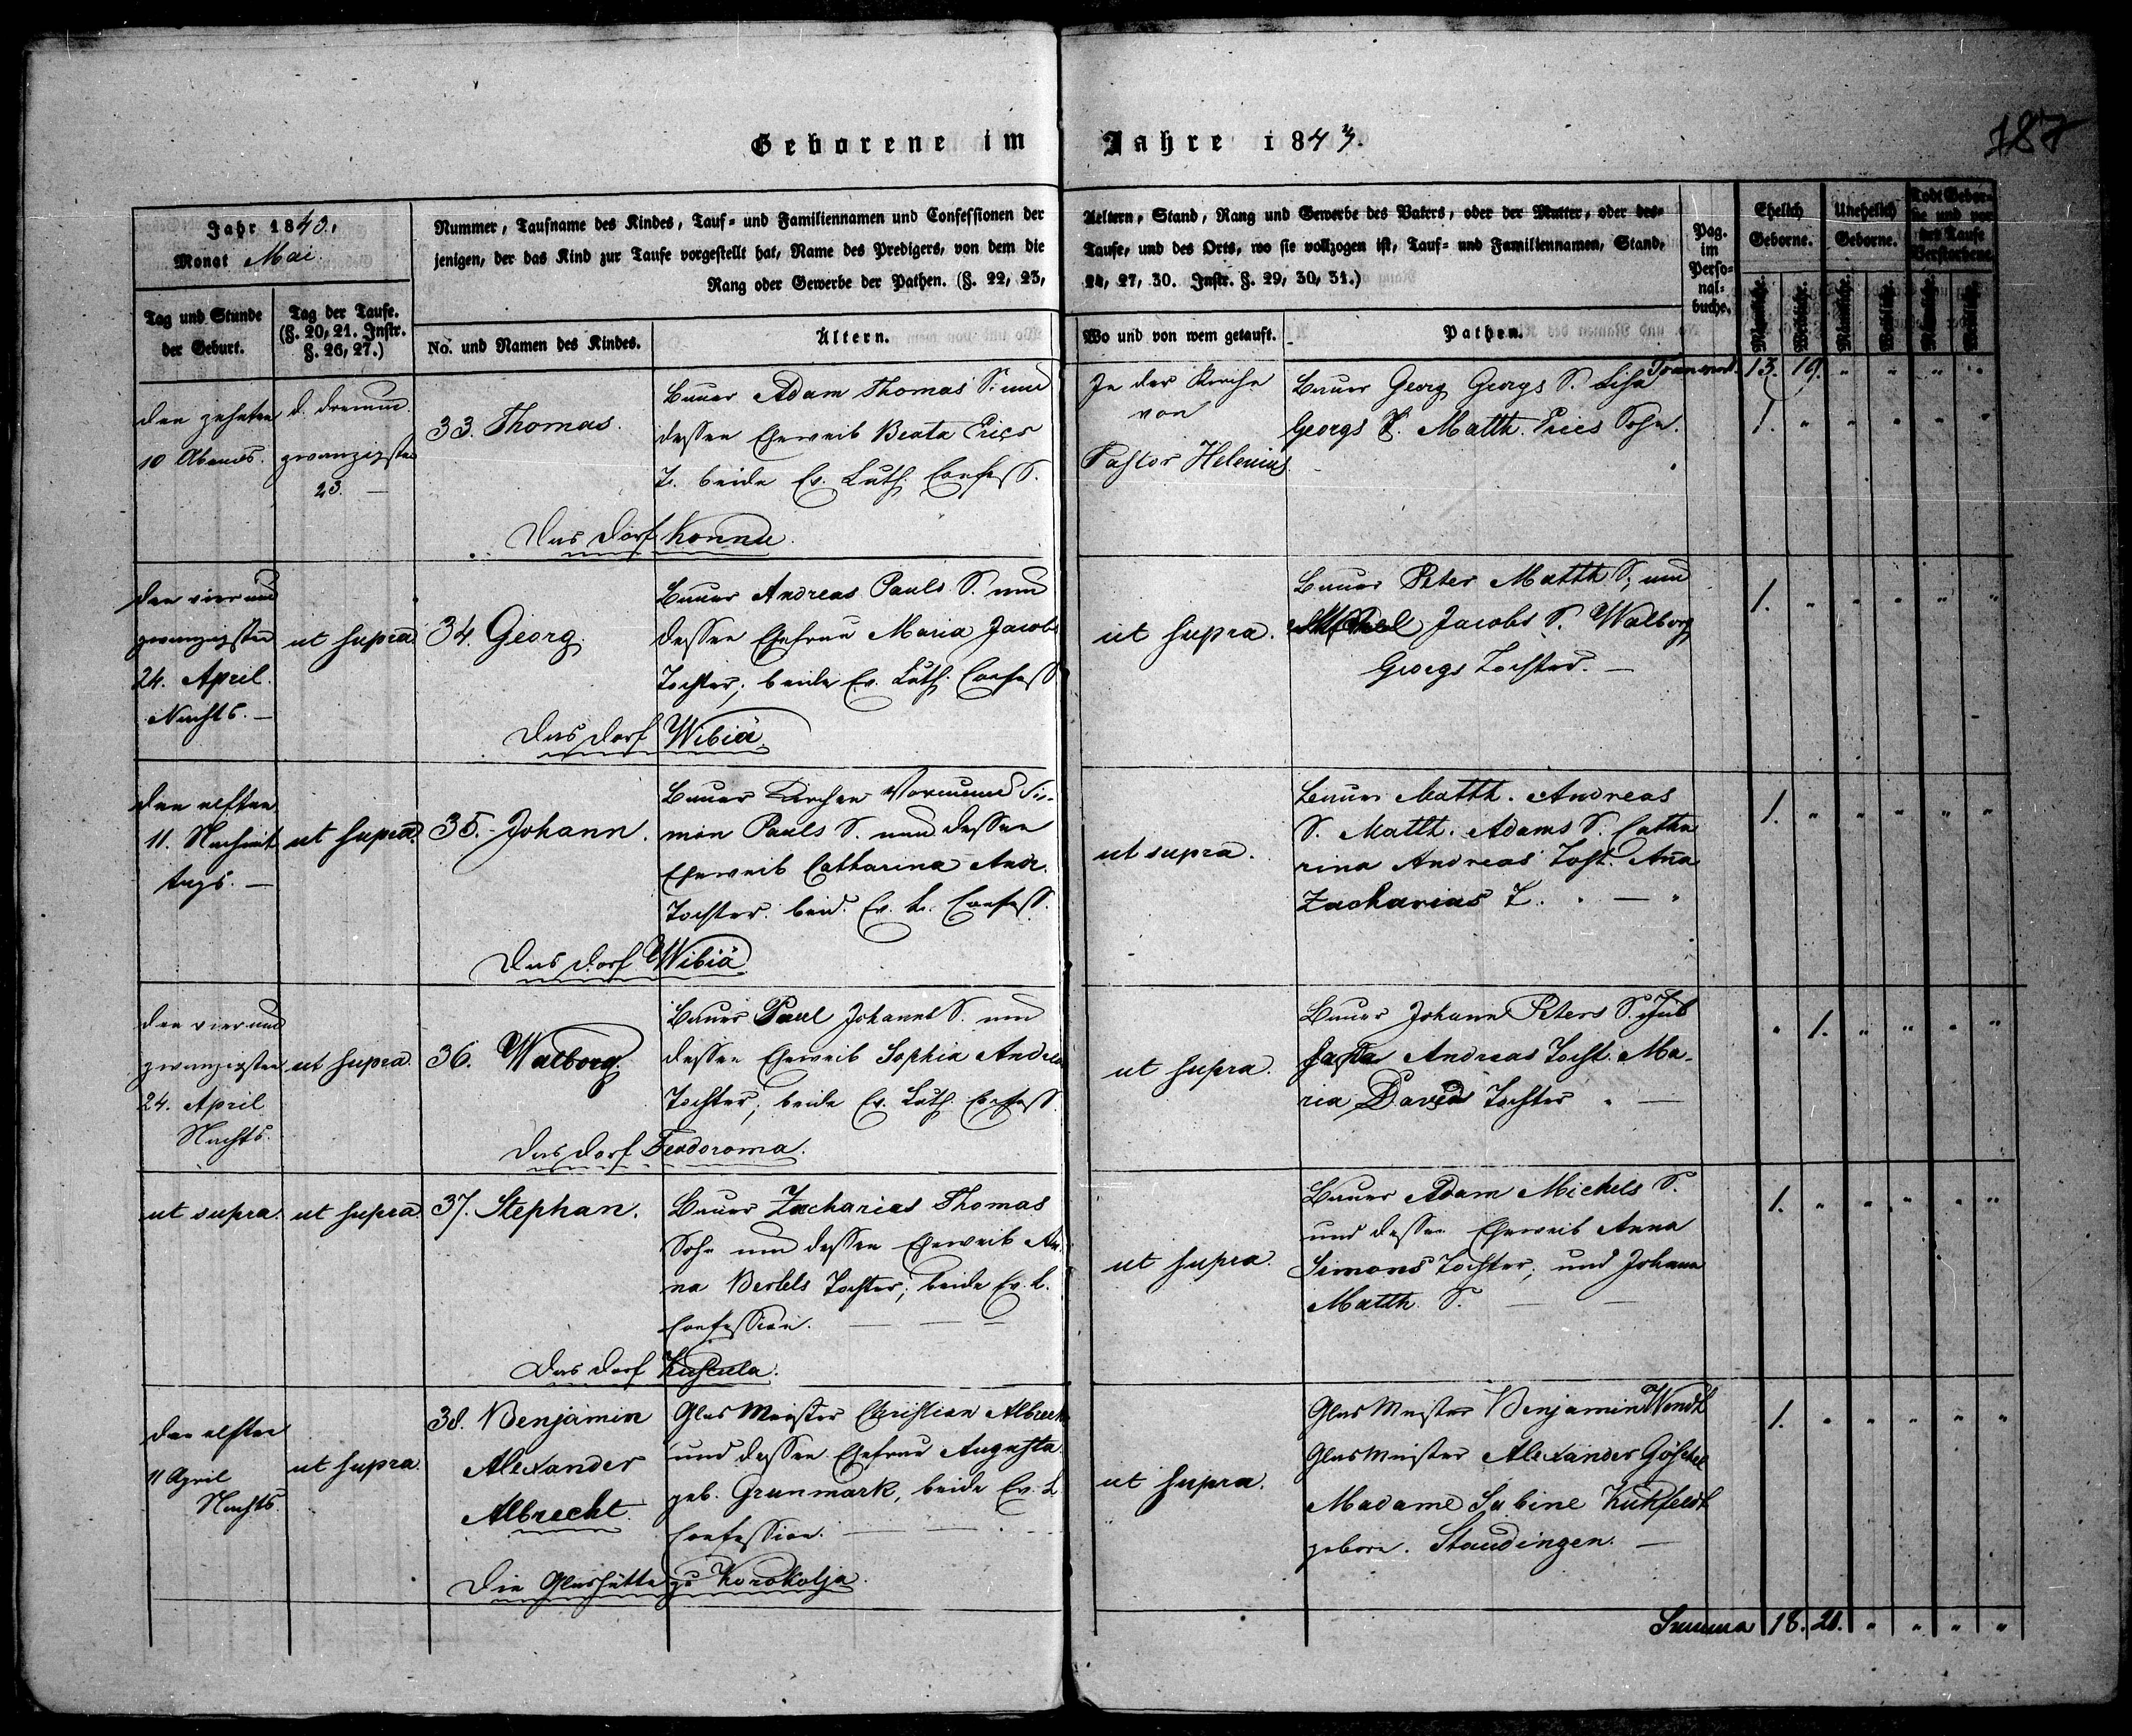 Geborene im Jahre 1843.
187
Jahr 1843.
Monat Mai
Nummer, Taufname des Kindes, Tauf- und Familiennamen und Confessionen der
jenigen, der das Kind zur Taufe vorgestellt hat, Name des Predigers, von dem die
Rang oder Gewerbe der Pathen. (§. 22, 23,
Aeltern, Stand, Rang und Gewerbe des Vaters, oder der Mutter, oder des-
Taufe, und des Orts, wo sie vollzogen ist, Tauf- und Familiennamen, Stand,
24, 27, 30. Instr. §. 29, 30, 31.)
Pag.
im
Perso-
nal-
buche.
Ehelich
Geborne.
Unehelich
Geborne.
Todt Gebor-
ne und vor
der Taufe
Verstorbene.
Tag und Stunde
der Geburt.
Tag der Taufe.
(§. 20, 21. Instr.
§. 26, 27.)
No. und Namen des Kindes.
Ältern.
Wo und von wem getauft.
Pathen.
Männliche.
Weibliche.
Männliche.
Weibliche.
Männliche.
Weibliche.
Transport. 13. 19. " " " "
den zehnten
10 Abends.
d. dreiund
zwanzigsten
23. —
33. Thomas.
Bauer Adam Thomas S. und
dessen Eheweib Beata Erics
T. beide Ev. Luth. Confess.
In der Kirche
von
Pastor Helenius.
Bauer Georg Georgs S. Lisa
Georgs T. Matth. Erics Sohn.
1. " " " " "
Das Dorf Konnu.
den vier und
zwanzigsten
24. April.
Nachts. —
ut supra.
34. Georg.
Bauer Andreas Pauls S. und
dessen Ehefrau Maria Jacobs
Tochter; beide Ev. Luth. Confess
ut supra.
Bauer Peter Matth S; und
Jacobs S. Walborg
Georgs Tochter. —
1. " " " " "
Das Dorf Wibiä
den elften
11. Nachmit
tags. —
ut supra.
35. Johann.
Bauer Kirchen Vormund Si-
mon Pauls S. und dessen
Eheweib Catharina Andr.
Tochter. beid. Ev. L. Confess.
ut supra.
Bauer Matth. Andreas
S. Matth. Adams S. Catha
rina Andreas Tocht. Anna
Zacharias T. —
1. " " " " "
Das Dorf Wibiä
den vier und
zwanzigsten
24. April
Nachts.
ut supra.
36. Walborg.
Bauer Paul Johanns S. und
dessen Eheweib Sophia Andrea
Tochter; beide Ev. Luth. Confess.
ut supra.
Bauer Johann Peters S.
Andreas Tocht. Ma-
ria David Tochter —
" 1. " " " "
Das Dorf Feodoroma.
ut supra.
ut supra.
37. Stephan.
Bauer Zacharias Thomas
Sohn und dessen Eheweib An
na Bertels Tochter; beide Ev. L.
Confession. — — —
ut supra.
Bauer Adam Michels S.
und dessen Eheweib Anna
Simons Tochter; und Johann
Matth S. — —
1. " " " " "
Das Dorf Kuscula.
den elften
11 April
Nachts.
ut supra.
38. Benjamin
Alexander
Albrecht.
Glas Meister Christian Albrecht
und dessen Ehefrau Augusta
geb. Grunmark, beide Ev. L
Confession. — —
ut supra.
Glas Meister Benjamin Wendt
Glas Meister Alexander Göschel
Madame Sabine Kükfeldt
gebore. Staudingen. —
1. " " " " "
Die Glashütte zu Korokolja.
Summa 18. 20. " " " "